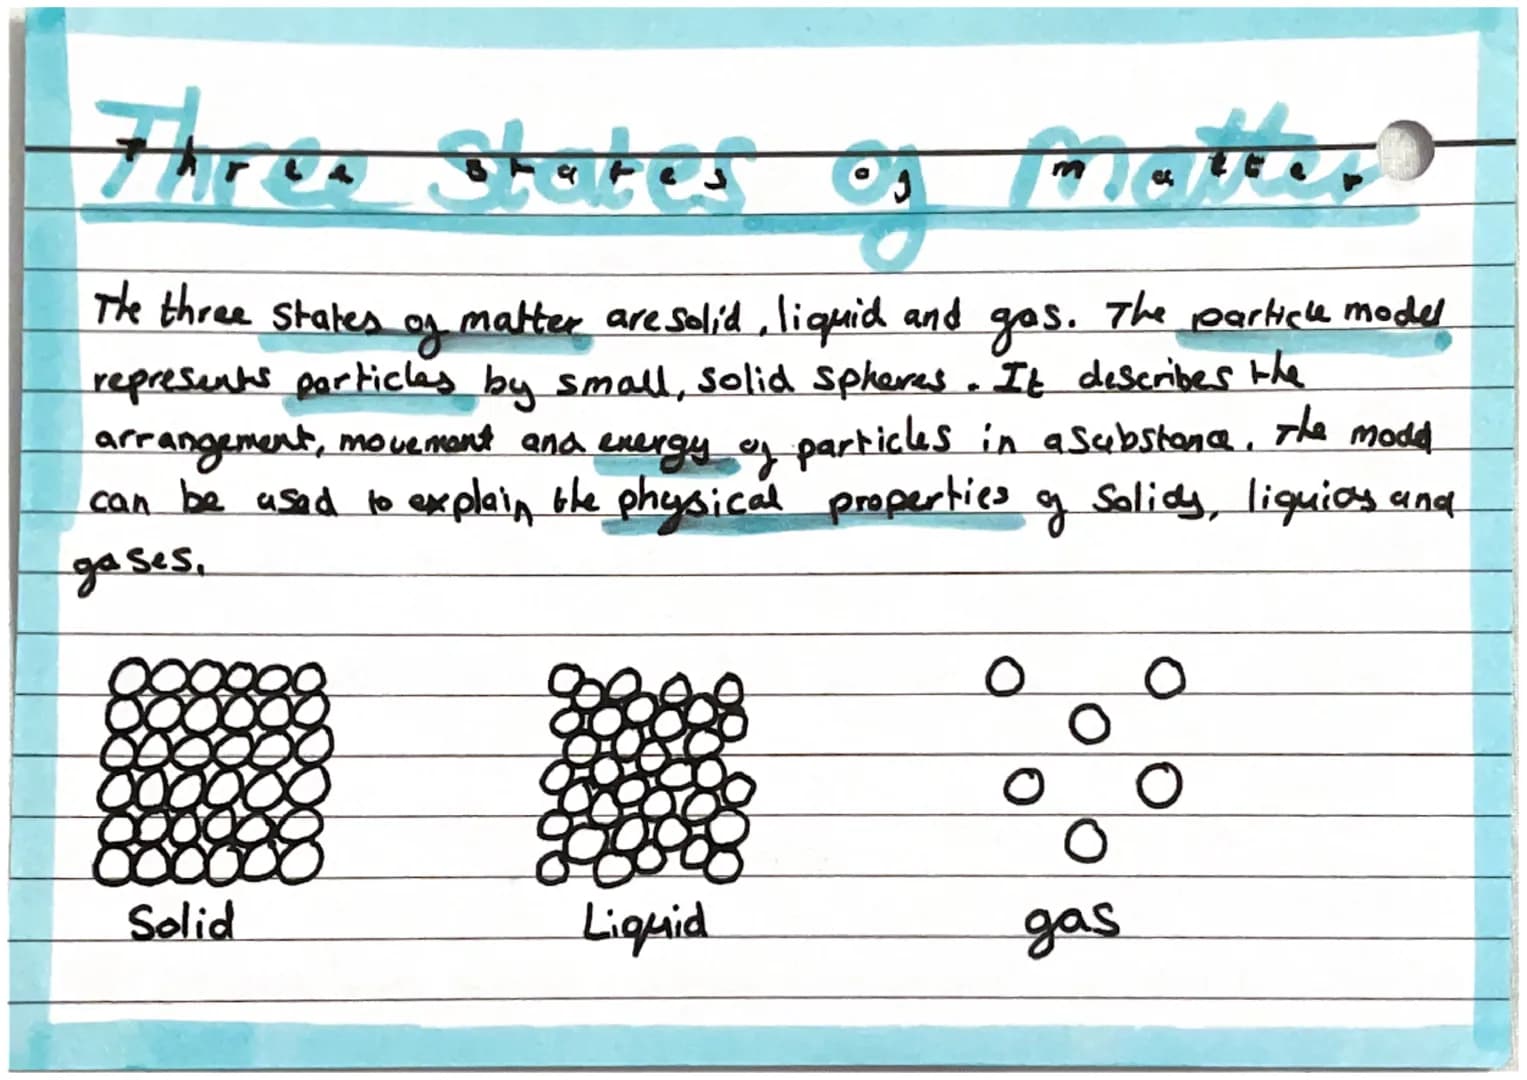 Three States of Matter
The three states of matter are solid, liquid and gas. The particle model
represents particles by small, solid spheres. It describes the
arrangement, movement and energy of particles in a substance. The model
can be used to explain the physical properties of solids, liquids and
gases.
Solid Liquid gas